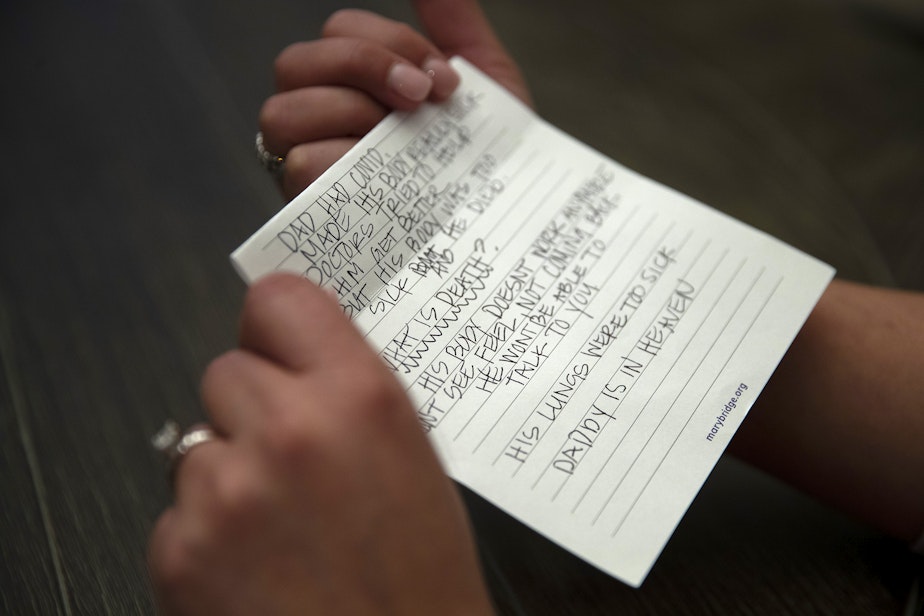 DAD HAD COVID.
MADE HIS BODY REALLY SICK
DOCTORS TRIED TO HELP
HIM GET BETTER
BUT HIS BODY WAS TOO
SICK AND HE DIED.
WHAT IS DEATH?
HIS BODY DOESN'T WORK ANYMORE
CANT SEE, FEEL NOT COMING BACK
HE WONT BE ABLE TO
TALK TO YOU
HIS LUNGS WERE TOO SICK
DADDY IS IN HEAVEN
marybridge.org